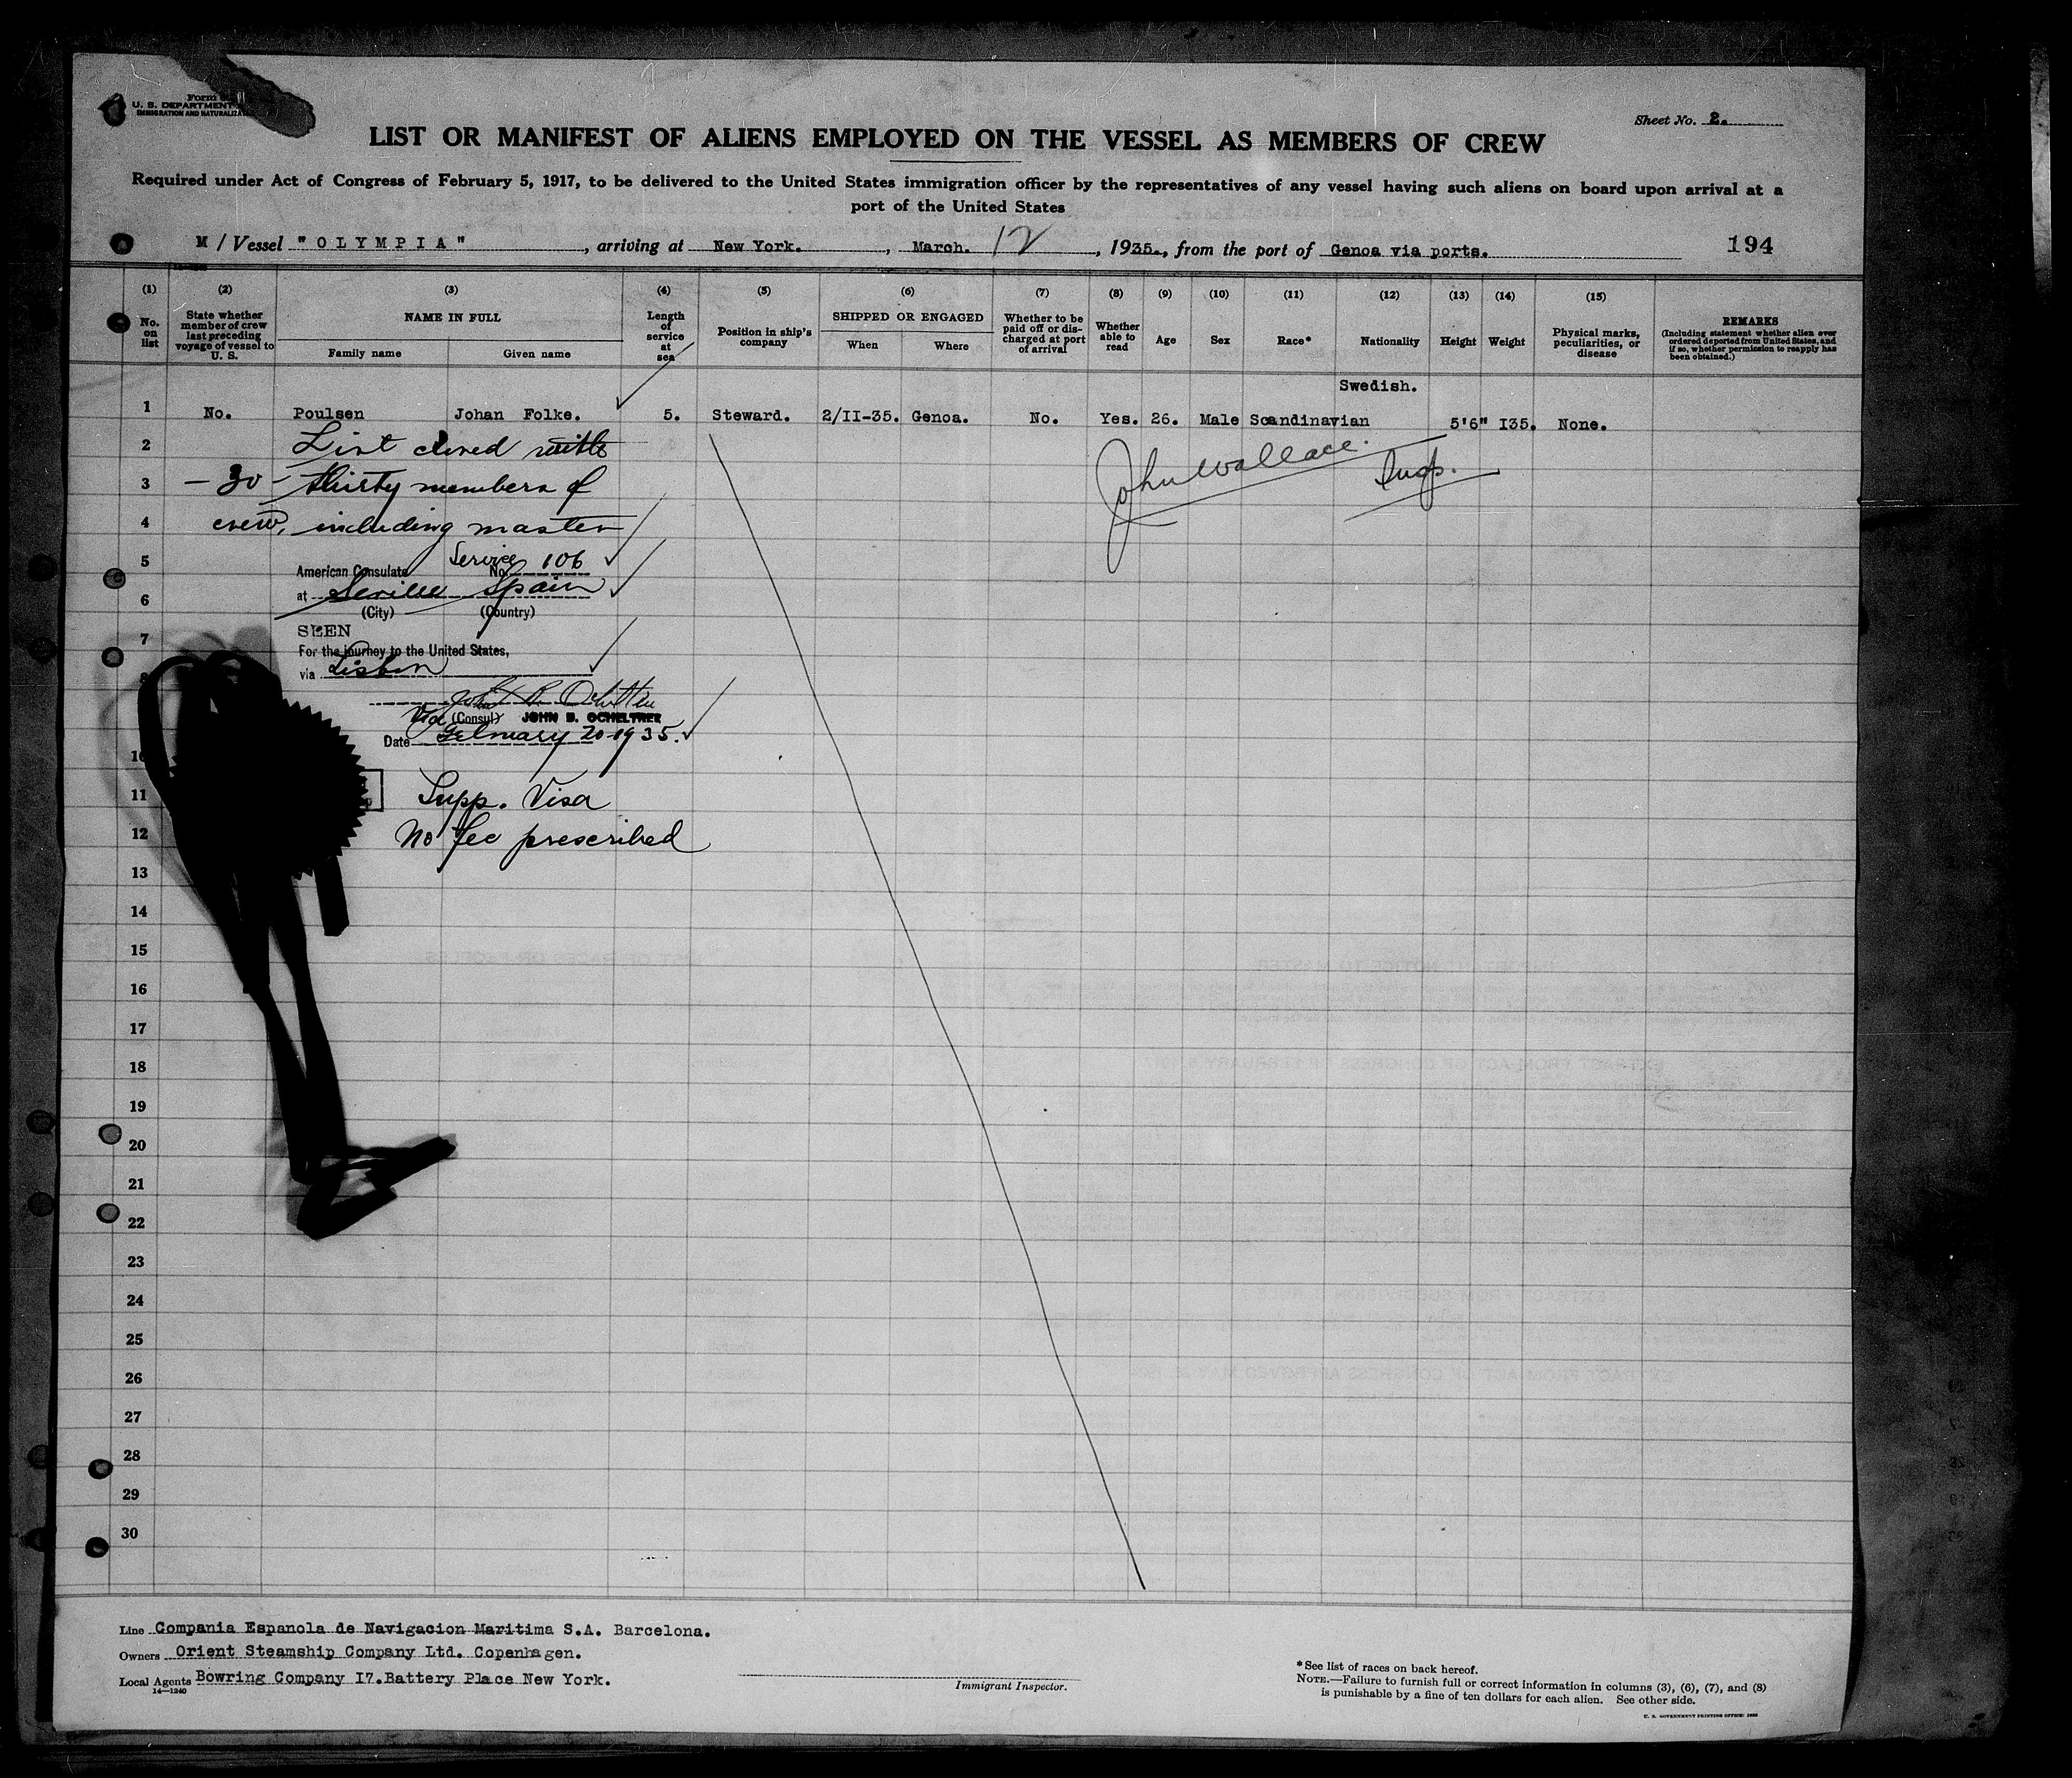 Form
U. S. DEPARTMENT
IMMIGRATION AND NATURALIZA
Sheet No. 2.
LIST OR MANIFEST OF ALIENS EMPLOYED ON THE VESSEL AS MEMBERS OF CREW
Required under Act of Congress of February 5, 1917, to be delivered to the United States immigration officer by the representatives of any vessel having such aliens on board upon arrival at a
port of the United States
M / Vessel "OLYMPIA", arriving at New York., March. 12, 1935., from the port of Genoa via ports. 194
(1) (2) (3) (4) (5) (6) (7) (8) (9) (10) (11) (12) (13) (14) (15)
No. on list
State whether member of crew last preceding voyage of vessel to U. S.
NAME IN FULL
Family name Given name
Length of service at sea
Position in ship's company
SHIPPED OR ENGAGED
When Where
Whether to be paid off or discharged at port of arrival
Whether able to read
Age
Sex
Race*
Nationality
Height
Weight
Physical marks, peculiarities, or disease
REMARKS
(Including statement whether alien ever ordered deported from United States, and if so, whether permission to reapply has been obtained.)
Swedish.
1 No. Poulsen Johan Folke. 5. Steward. 2/II-35. Genoa. No. Yes. 26. Male Scandinavian 5'6" I35. None.
2 List closed with
John Wallace Insp.
3 - 30 - thirty members of
4 crew, including master
5 Service
American Consulate No. 106
6 at Seville Spain
(City) (Country)
SEEN
7 For the journey to the United States,
8 via Lisbon
Vice (Consul) JOHN B. OCHELTREE
Date February 20-1935.
10
11 Supp. Visa
12 No fee prescribed
13
14
15
16
17
18
19
20
21
22
23
24
25
26
27
28
29
30
Line Compania Espanola de Navigacion Maritima S.A. Barcelona.
Owners Orient Steamship Company Ltd. Copenhagen.
Local Agents Bowring Company I7.Battery Place New York.
14—1240
Immigrant Inspector.
*See list of races on back hereof.
NOTE.—Failure to furnish full or correct information in columns (3), (6), (7), and (8)
is punishable by a fine of ten dollars for each alien. See other side.
U. S. GOVERNMENT PRINTING OFFICE: